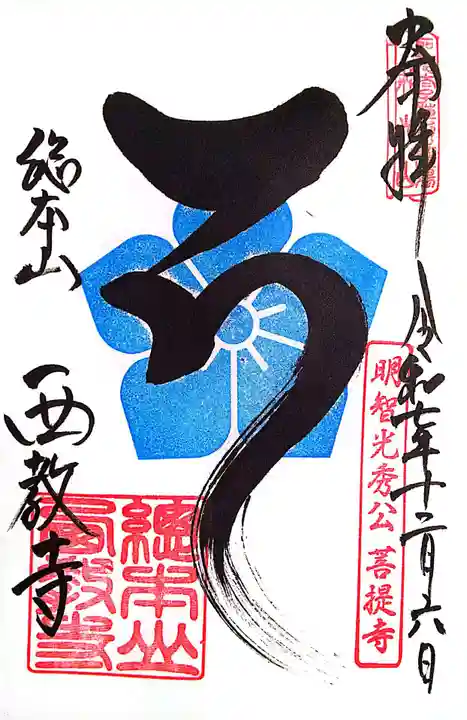 奉拝
令和七年十二月六日
明智光秀公 菩提寺
総本山
西教寺
總本山
西教寺